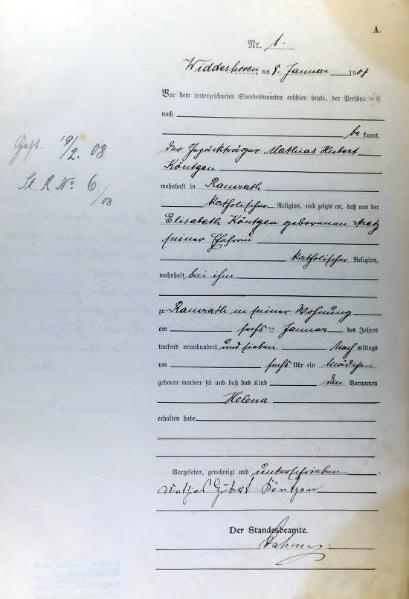 A.
Nr. 1.
Widdeshoven am 8. Januar 1907
Vor dem unterzeichneten Standesbeamten erschien heute, der Persönlichkeit
nach
bekannt,
der Mathias Hubert
Köntgen
wohnhaft in Ramrath
katholischer Religion, und zeigte an, daß von der
Elisabeth Köntgen geborenen
seiner Ehefrau
katholischer Religion,
wohnhaft bei ihm
zu Ramrath in seiner Wohnung
am sechsten Januar des Jahres
tausend neunhundert und sieben Nachmittags
um sechs Uhr ein Mädchen
geboren worden sei und daß das Kind den Vornamen
Helena
erhalten habe
Vorgelesen, genehmigt und unterschrieben
Mathias Hubert Köntgen
Der Standesbeamte.
Gest. 19/2. 08
St. R. No 6/08